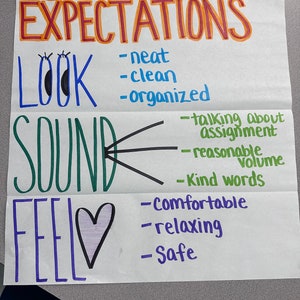 EXPECTATIONS
LOOK
-neat
-clean
-organized
SOUND
-talking about
assignment
-reasonable
volume
-Kind words
FEEL
-Comfortable
-relaxing
-Safe